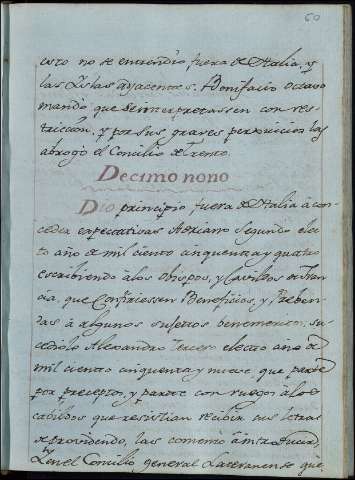 60
esto no se entendio fuera de Italia, y
las Yslas adyacentes. Bonifacio octavo
mandò que se interpretassen con res-
triccion, y por sus graves perjuicios las
abrogo el Concilio de Trento.
Decimo nono
Dio principio fuera de Italia à con-
ceder expectativas Adriano segundo elec-
to año de mil ciento cinquenta y quatro
escribiendo à los obispos, y Cavildos de Fran-
cia, que Confiriessen Beneficios, y Preben-
das à algunos sujetos benemeritos, su-
cediole Alexandro Tercero electo año de
mil ciento cinquenta y nueve, que parte
por preceptos, y parte con ruegos à los
Cabildos que resistian recibir sus letras
de providendo, las comenzó à
y en el Concilio general Lateranense que